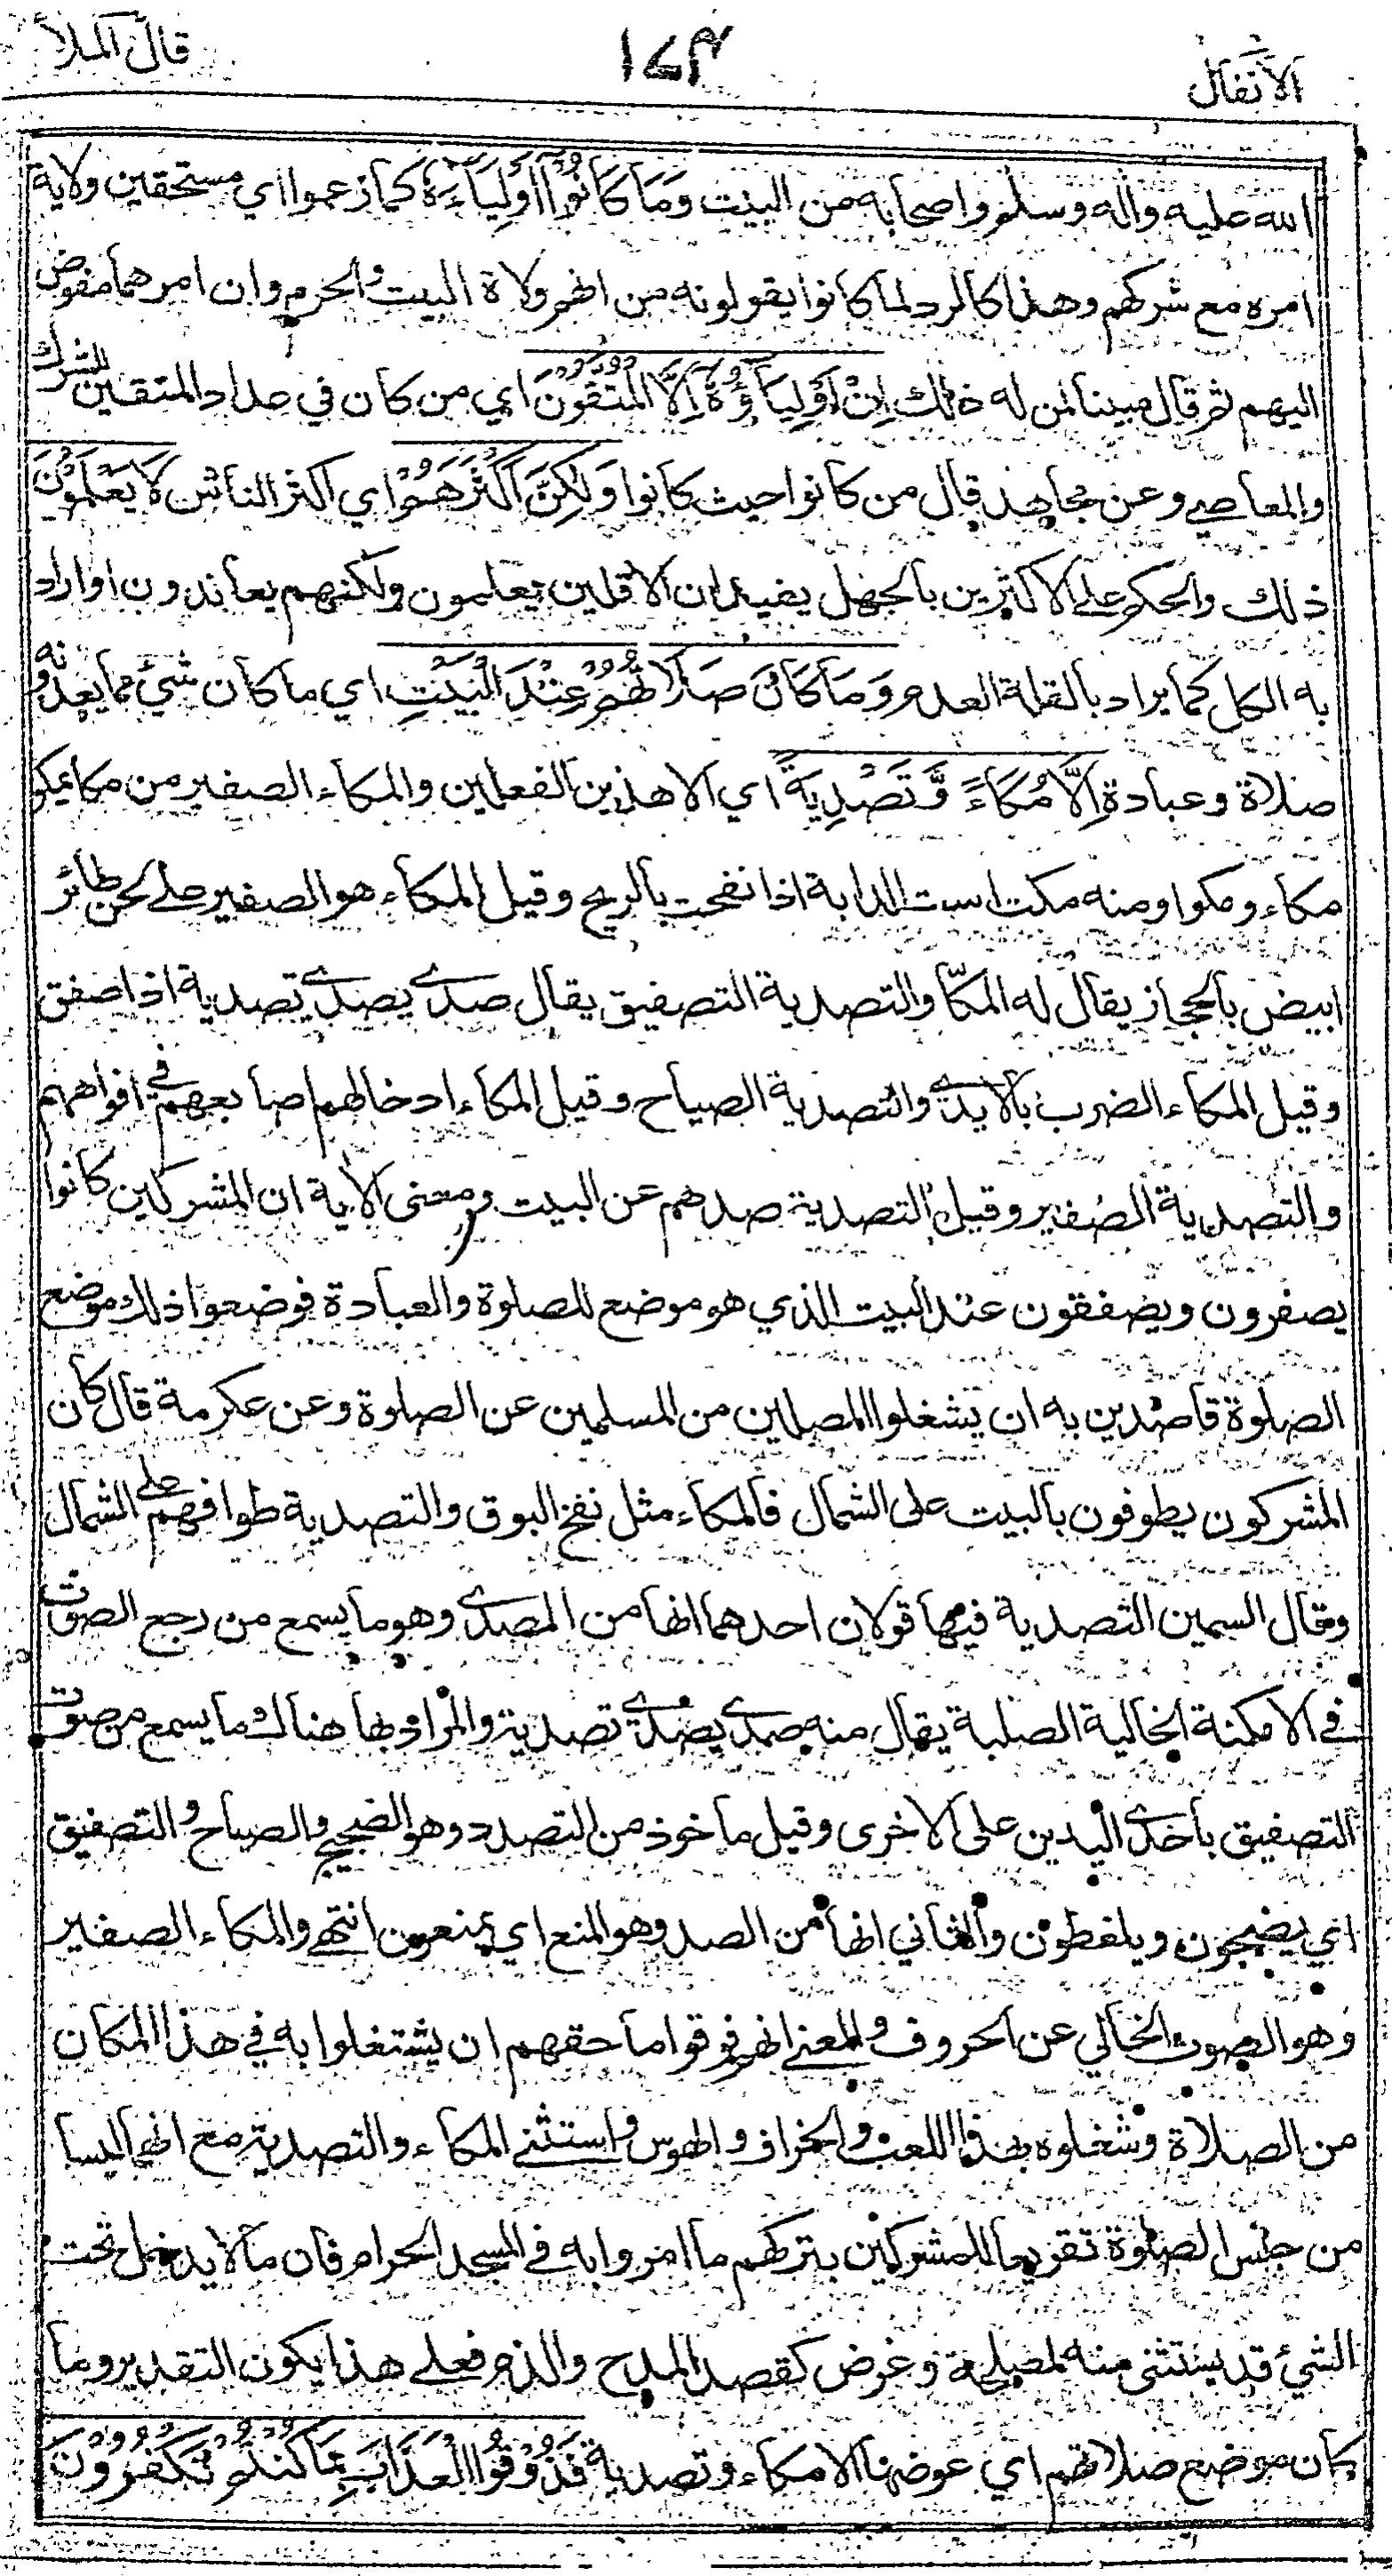 الانفال
١٧٤
قال الملأ
الله عليه واٰله وسلم واصحابه من البيت وَمَا كَانُوْا اَوْلِيَآءَهٗ كما زعموا اي مستحقين ولاية
امره مع شركهم وهذا كالرد لما كانوا يقولونه من انهم ولاة البيت والحرم وان امرهما مفوض
اليهم ثم قال مبينا لمن له ذلك اِنْ اَوْلِيَآؤُهٗ اِلَّا الْمُتَّقُوْنَ اي من كان في عداد المتقين للشرك
والمعاصي وعن مجاهد قال من كانوا حيث كانوا وَلٰكِنَّ اَكْثَرَهُمْ اي اكثر الناس لَا يَعْلَمُوْنَ
ذلك والحكم على الاكثرين بالجهل يفيد ان الاقلين يعلمون ولكنهم يعاندون او اراد
به الكل كما يراد بالقلة العدم وَمَا كَانَ صَلَاتُهُمْ عِنْدَ الْبَيْتِ اي ما كان شيء مما يعدونه
صلاة وعبادة اِلَّا مُكَآءً وَّتَصْدِيَةً اي الا هذين الفعلين والمكاء الصفير من مكا يمكو
مكاء ومكوا ومنه مكت است الدابة اذا نفحت بالريح وقيل المكاء هو الصفير على لحن طائر
ابيض بالحجاز يقال له المكّا والتصدية التصفيق يقال صدى يصدي تصدية اذا صفق
وقيل المكاء الضرب بالايدي والتصدية الصياح وقيل المكاء ادخالهم اصابعهم في افواههم
والتصدية الصفير وقيل التصدية صدهم عن البيت ومعنى الاٰية ان المشركين كانوا
يصفرون ويصفقون عند البيت الذي هو موضع للصلوة والعبادة فوضعوا ذلك موضع
الصلوة قاصدين به ان يشغلوا المصلين من المسلمين عن الصلوة وعن عكرمة قال كان
المشركون يطوفون بالبيت على الشمال فالمكاء مثل نفخ البوق والتصدية طوافهم على الشمال
وقال السمين التصدية فيها قولان احدهما انها من الصدى وهو ما يسمع من رجع الصوت
في الامكنة الخالية الصلبة يقال منه صدى يصدي تصدية والمراد بها هناك ما يسمع من صوت
التصفيق باحدى اليدين على الاخرى وقيل ماخوذ من التصدد وهو الضجيج والصياح والتصفيق
اي يضجون ويلغطون والثاني انها من الصد وهو المنع اي يمنعون انتهى والمكاء الصفير
وهو الصوت الخالي عن الحروف والمعنى انهم فوقوا ما حقهم ان يشتغلوا به في هذا المكان
من الصلاة وشغلوه بهذا اللعب والخراف والهوس واستثنى المكاء والتصدية مع انهما ليسا
من جنس الصلوة تقريعا للمشركين بتركهم ما امروا به في المسجد الحرام فان ما لا يدخل تحت
الشيء قد يستثنى منه لمصلحة وغرض كقصد المدح والذم فعلى هذا يكون التقدير وما
كان موضع صلاتهم اي عوضها الا مكاء وتصدية فَذُوْقُوا الْعَذَابَ بِمَا كُنْتُمْ تَكْفُرُوْنَ